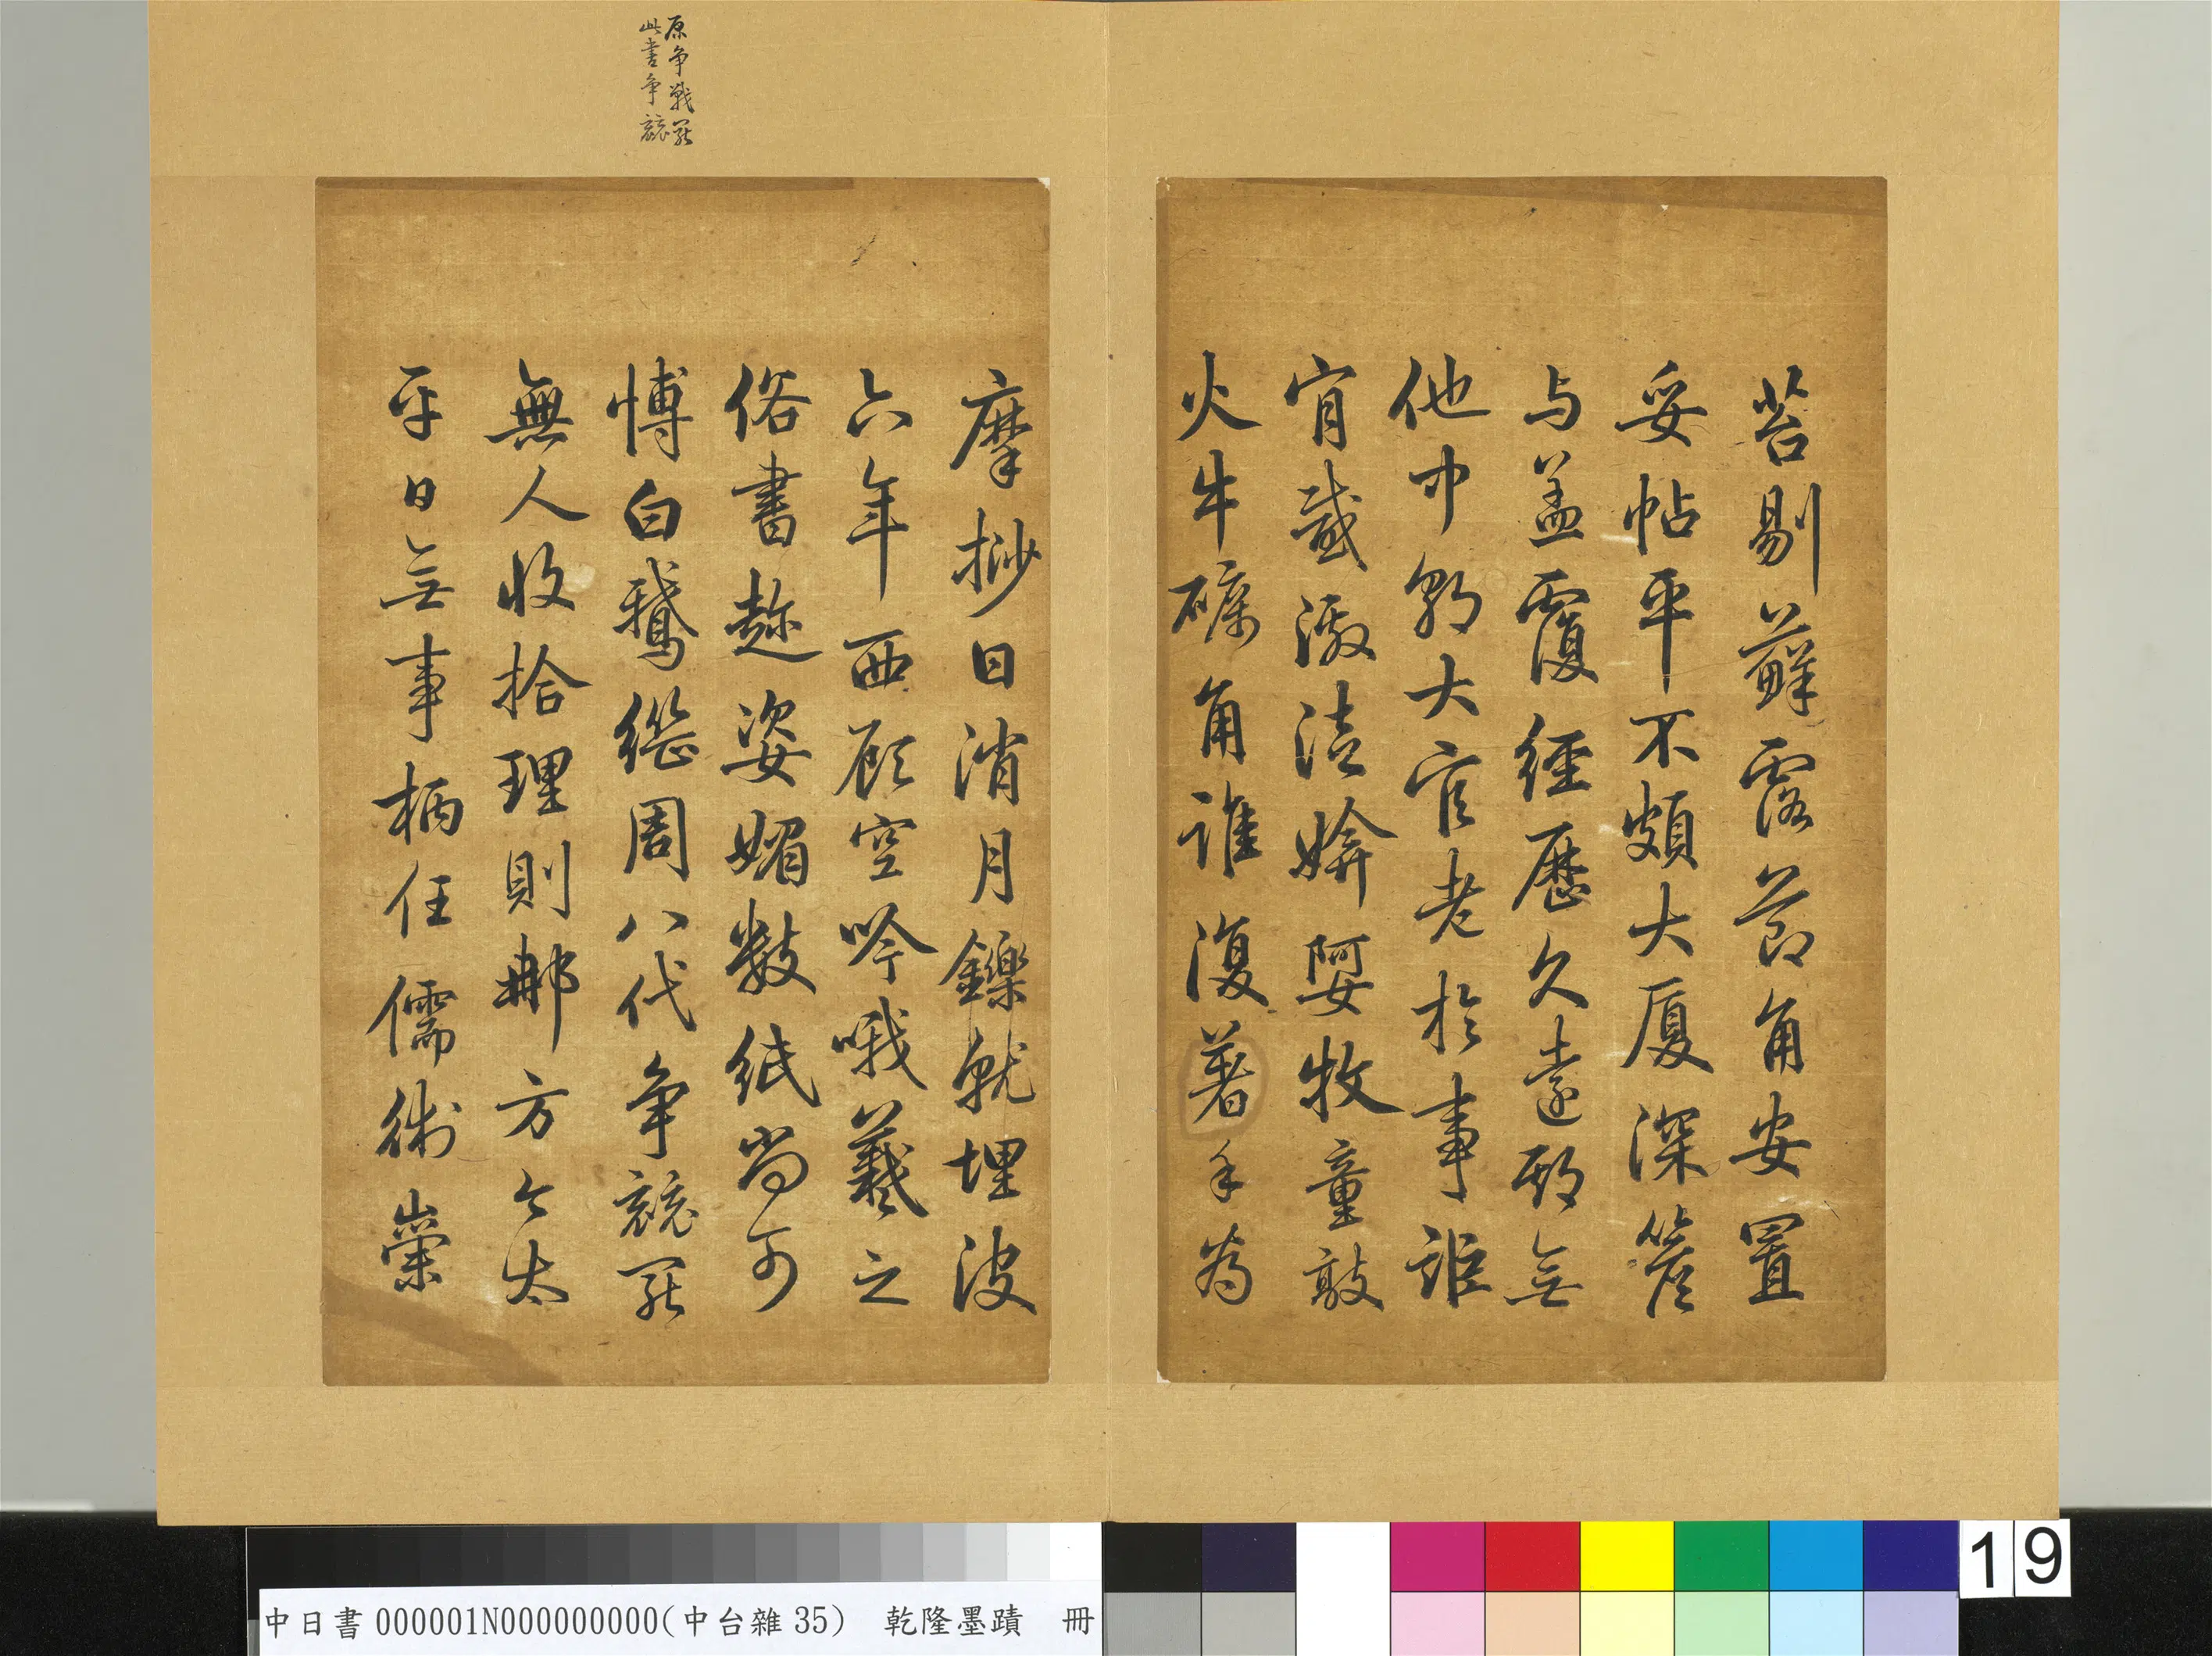 苔剔蘚露節角安置
妥帖平不頗大厦深簷
与盖覆經歷久遠期無
他中朝大官老於事詎
肯感激徒媕婀牧童敲
火牛礪角誰復著手為
原争戰罷
此書争競
摩挲日消月鑠就埋没
六年西顧空吟哦羲之
俗書趁姿媚數紙尚可
博白鵝繼周八代争競罷
無人收拾理則那方今太
平日無事柄任儒術崇
19
中日書000001N000000000(中台雜35) 乾隆墨蹟 冊